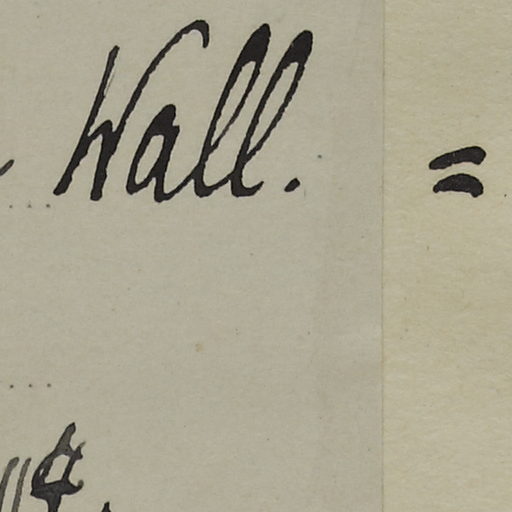 Wall. =